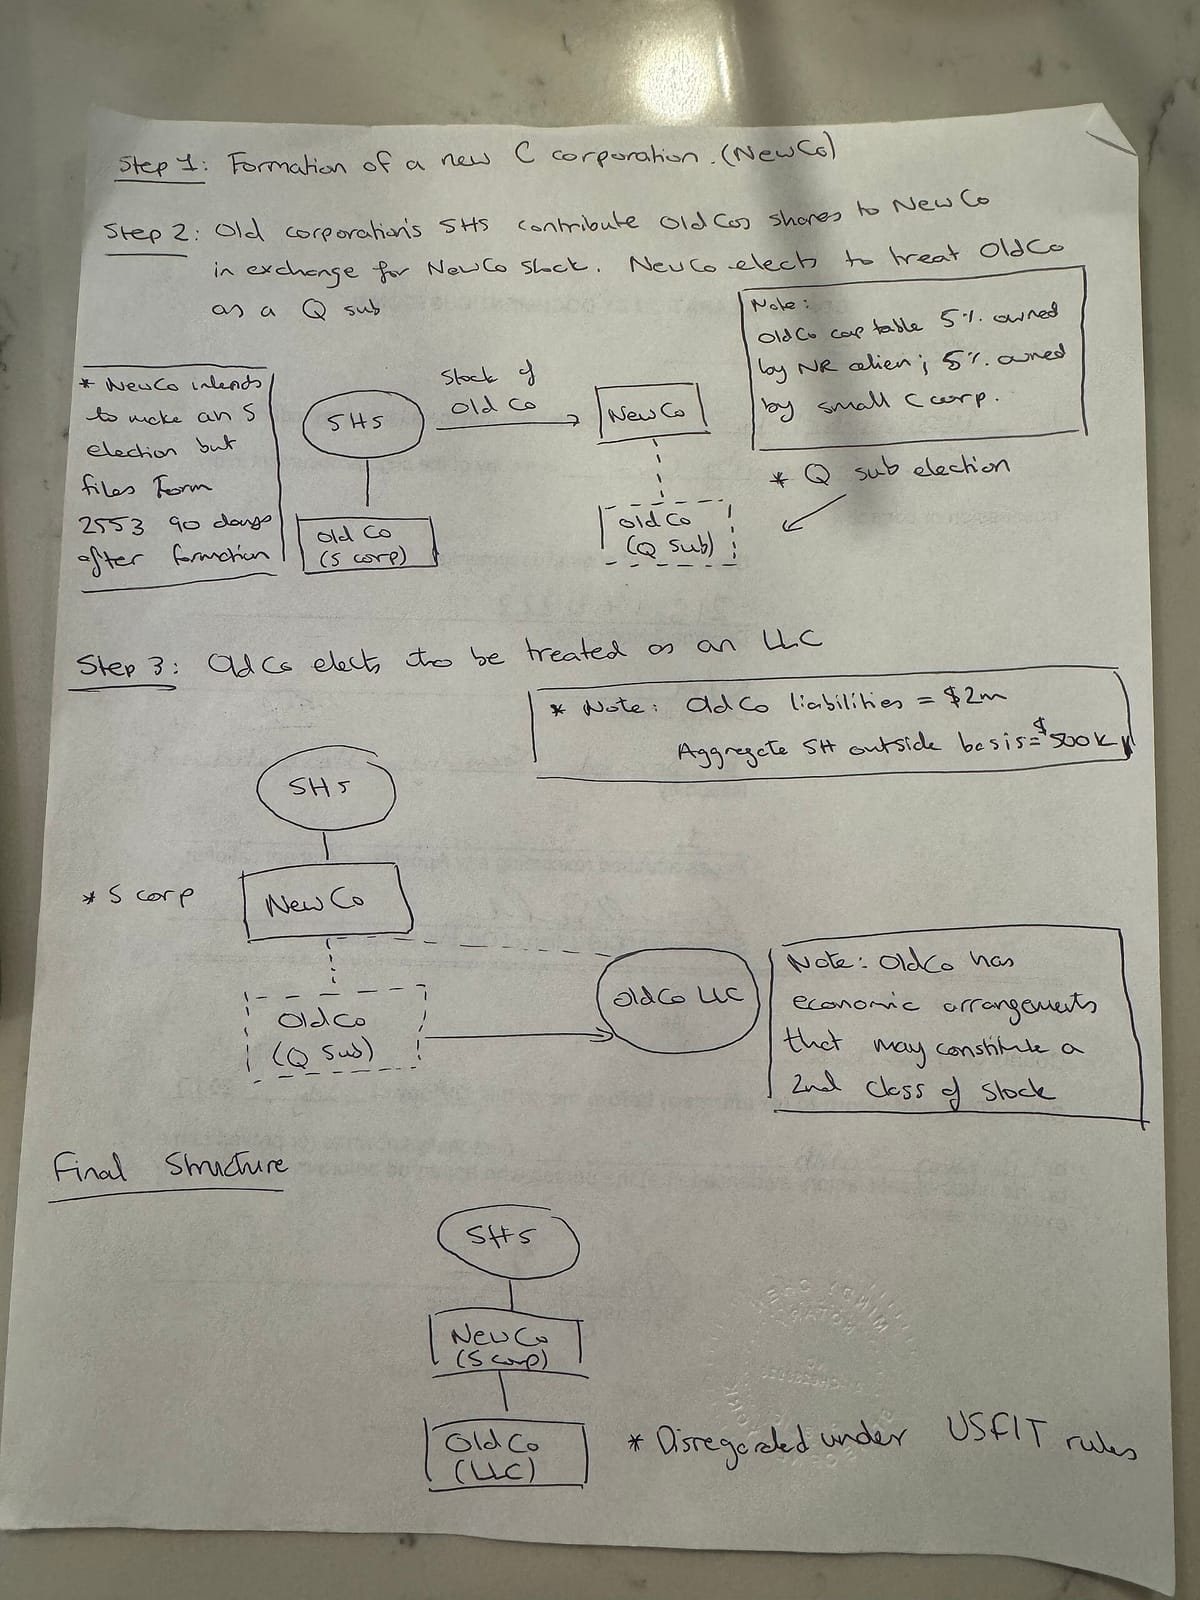 Step 1: Formation of a new C corporation. (NewCo)
Step 2: Old corporation's SHS contribute OldCos shares to NewCo
in exchange for NewCo Stock. NewCo elects to treat OldCo
as a Q sub
Note:
OldCo cap table 5% owned
by NR alien; 5% owned
by small C corp.
* NewCo intends
to make an S
election but
files Form
2553 90 days
after formation
SHS
Stock of
Old Co
NewCo
* Q sub election
Old Co
(S corp)
Old Co
(Q Sub)
Step 3: Old Co elects to be treated as an LLC
* Note: OldCo liabilities = $2m
Aggregate SH outside basis = $500K
SHS
* S corp
NewCo
OldCo
(Q Sub)
OldCo LLC
Note: OldCo has
economic arrangements
that may constitute a
2nd class of stock
Final Structure
SHS
NewCo
(S corp)
OldCo
(LLC)
* Disregarded under USFIT rules